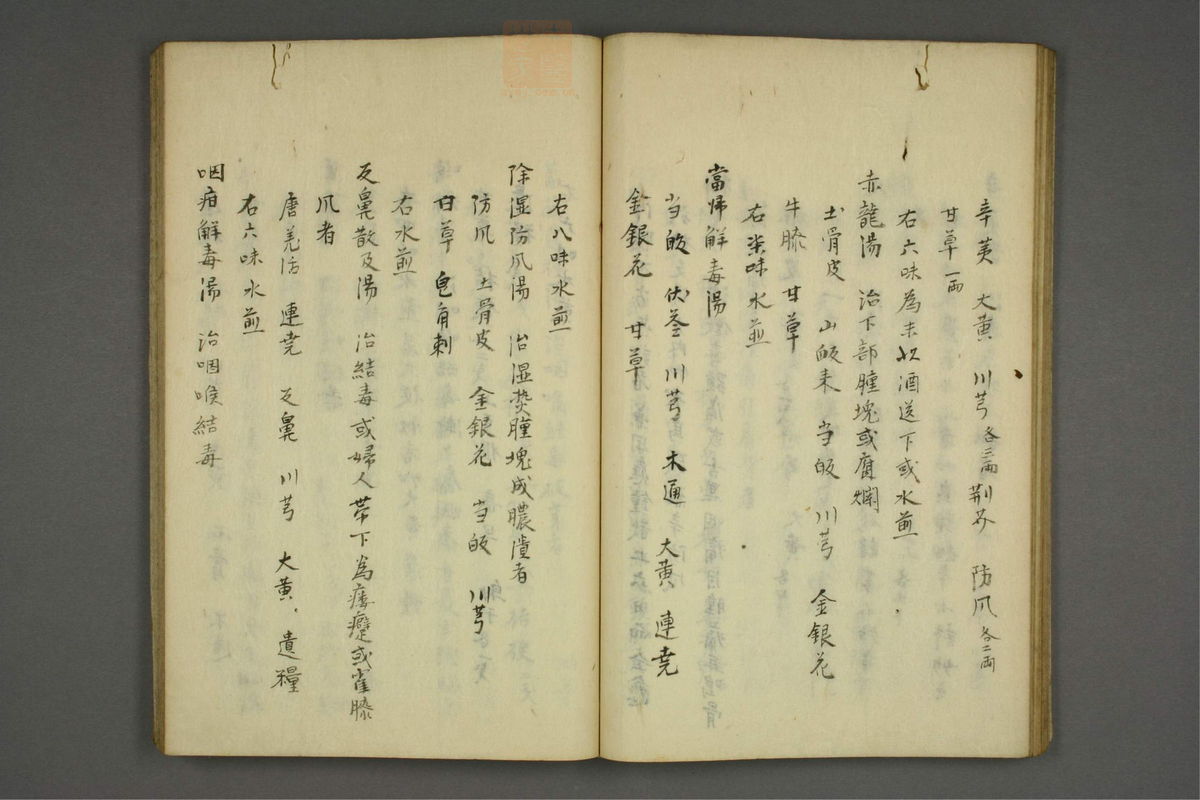 辛荑 大黄 川芎各三両 荊芥 防风各二両
甘草一両
右六味為末以酒送下或水煎
赤龍湯 治下部腫塊或腐爛
土骨皮 山皈来 当皈 川芎 金銀花
牛膝 甘草
右柒味水煎
當帰解毒湯
当皈 伏苓 川芎 木通 大黄 連尭
金銀花 甘草
右八味水煎
除湿防风湯 治湿熒腫塊成膿潰者
防风 土骨皮 金銀花 当皈 川芎
甘草 皂角刺
右水煎
反鼻散及湯 治結毒或婦人帯下為痿躄或雀膝
风者
唐羌活 連尭 反鼻 川芎 大黄 遺糧
右六味水煎
咽疳解毒湯 治咽喉結毒